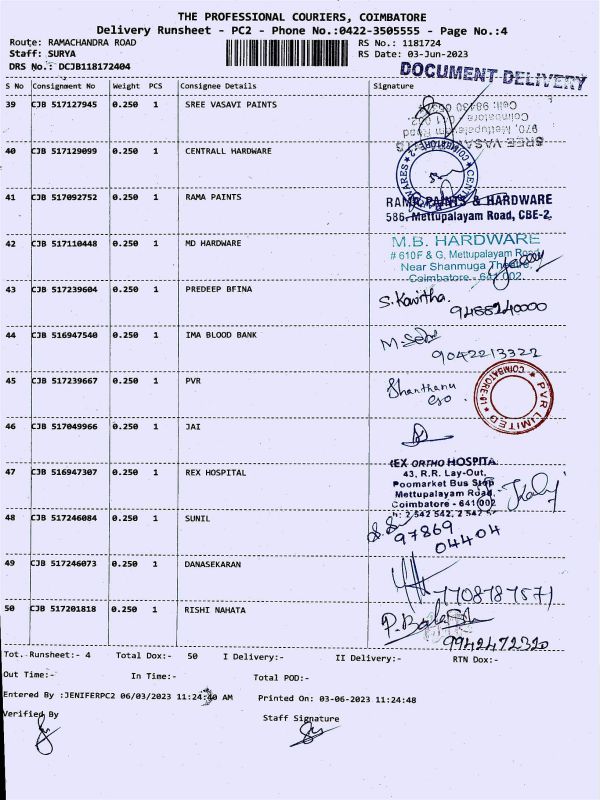 THE PROFESSIONAL COURIERS, COIMBATORE
Delivery Runsheet - PC2 - Phone No.:0422-3505555 - Page No.:4
Route: RAMACHANDRA ROAD RS No.: 1181724
Staff: SURYA RS Date: 03-Jun-2023
DRS No.: DCJB118172404
DOCUMENT DELIVERY
S No Consignment No Weight PCS Consignee Details Signature
39 CJB 517127945 0.250 1 SREE VASAVI PAINTS
SREE VASAVI
970, Mettupalayam Road
Coimbatore
40 CJB 517129099 0.250 1 CENTRALL HARDWARE
41 CJB 517092752 0.250 1 RAMA PAINTS
RAMA PAINTS & HARDWARE
586, Mettupalayam Road, CBE-2.
42 CJB 517110448 0.250 1 MD HARDWARE
M.B. HARDWARE
# 610F & G, Mettupalayam Road
Near Shanmuga Theatre,
Coimbatore - 641 002
43 CJB 517239604 0.250 1 PREDEEP BFINA
S. Kavitha.
44 CJB 516947540 0.250 1 IMA BLOOD BANK
9042213322
45 CJB 517239667 0.250 1 PVR
Shanthanu
PVR LIMITED
COIMBATORE-01
46 CJB 517049966 0.250 1 JAI
47 CJB 516947307 0.250 1 REX HOSPITAL
REX ORTHO HOSPITAL
43, R.R. Lay-Out,
Poomarket Bus Stop
Mettupalayam Road,
Coimbatore - 641 002
2 542 542, 2 542
48 CJB 517246084 0.250 1 SUNIL
97869
04404
49 CJB 517246073 0.250 1 DANASEKARAN
7708787571
50 CJB 517201818 0.250 1 RISHI NAHATA
9942472320
Tot. Runsheet:- 4 Total Dox:- 50 I Delivery:- II Delivery:- RTN Dox:-
Out Time:- In Time:- Total POD:-
Entered By :JENIFERPC2 06/03/2023 11:24:40 AM Printed On: 03-06-2023 11:24:48
Verified By Staff Signature